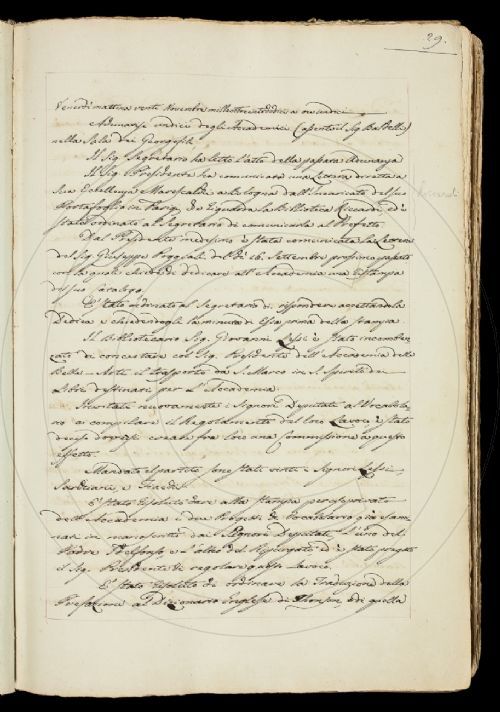 29.
Venerdì mattina venti Novembre milleottocentododici a ore undici
Adunanza undici degli Accademici (assente il Sig. Del Bello)
nella Sala dei Georgofili.
Il Sig. Segretario ha letto l'atto della passata Adunanza
Il Sig. Presidente ha comunicata una Lettera diretta a
Sua Eccellenza Marescalchi dall'Incaricato del suo
Portafoglio in Parigi, la Biblioteca Riccardi, ed è
stato ordinato al Segretario di comunicarla al Prefetto.
Dal Presidente medesimo è stata comunicata la Lettera
del Sig. Giuseppe Poggiali del dì 26. Settembre prossimo passato
con la quale chiede di dedicare all'Accademia una ristampa
del suo Catalogo.
È stato ordinato al Segretario di rispondere accettando la
Dedica e chiedendogli la minuta di essa prima della stampa
Il Bibliotecario Sig. Giovanni Lessi è stato incomben-
zato di concertare col Sig. Presidente dell'Accademia delle
Belle-Arti il trasporto da S. Marco in S. Spirito dei
Libri destinati per l'Accademia
Incaricati nuovamente i Signori Deputati al Vocabola-
rio a compilare il Regolamento del loro Lavoro è stato
deciso doversi creare fra loro una Commissione a questo
effetto.
Mandato il partito sono stati vinti i Signori Lessi
Sarchiani, e Fiacchi.
È stato risoluto dare alla stampa per uso privato
dell'Accademia i due Progetti di Vocabolario già esami-
nati in manoscritto dai Signori Deputati, l'uno del
Padre Ildefonso e l'altro del Ripurgato ed è stato pregato
il Sig. Presidente di regolare questo Lavoro.
È stato risoluto di ordinare la Traduzione della
Prefazione al Dizionario Inglese di Jhonson e di quella